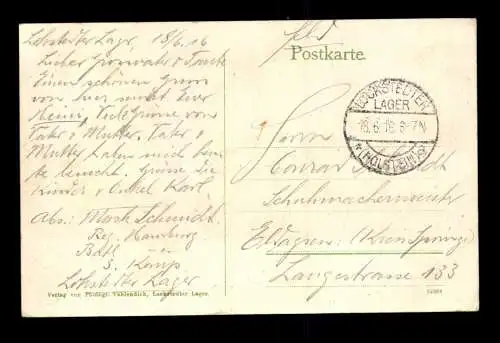 Lohstedter Lager, 18/6.16
Lieber Grossvater u Tante
Einen schönen Gruss
von hier sendet Euer
Heini, Viele Grüsse von
Vater u Mutter, Vater u
Mutter haben mich heu-
te besucht. Grüsse die
Kinder u Onkel Karl.
Abs: Schmidt
Reg. Hamburg
Batl
5. Komp
Lohstedter Lager
Verlag von Photogr. Vahlendick, Lockstedter Lager.
Feld
Postkarte.
LOCKSTEDTER
LAGER
18.6.16 6-7N
* (HOLSTEIN) *
Herrn
Conrad Schmidt
Schuhmachermeister
Eldagsen (Kreis Springe)
Langestrasse 133